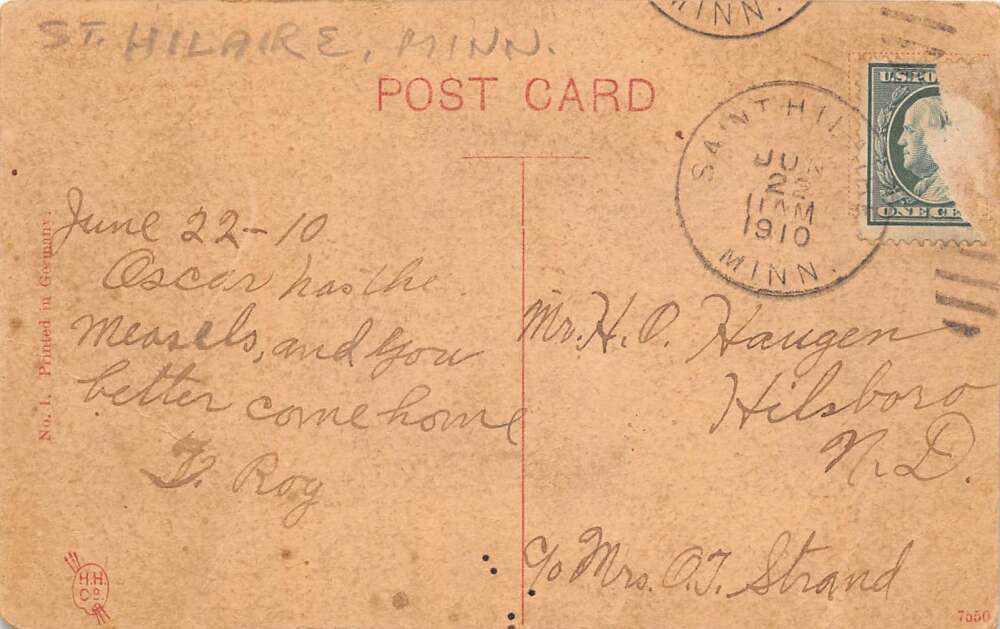 ST. HILAIRE, MINN.
MINN.
POST CARD
SAINT HILAIRE
JUN
22
11 AM
1910
MINN.
U.S. PO
ONE CE
June 22-10
Oscar has the
Measels, and you
better come home
Roy
Mr. H. O. Haugen
Hilsboro
N. D.
c/o Mrs. O. T. Strand
No. 1. Printed in Germany.
H. H.
Co.
7550